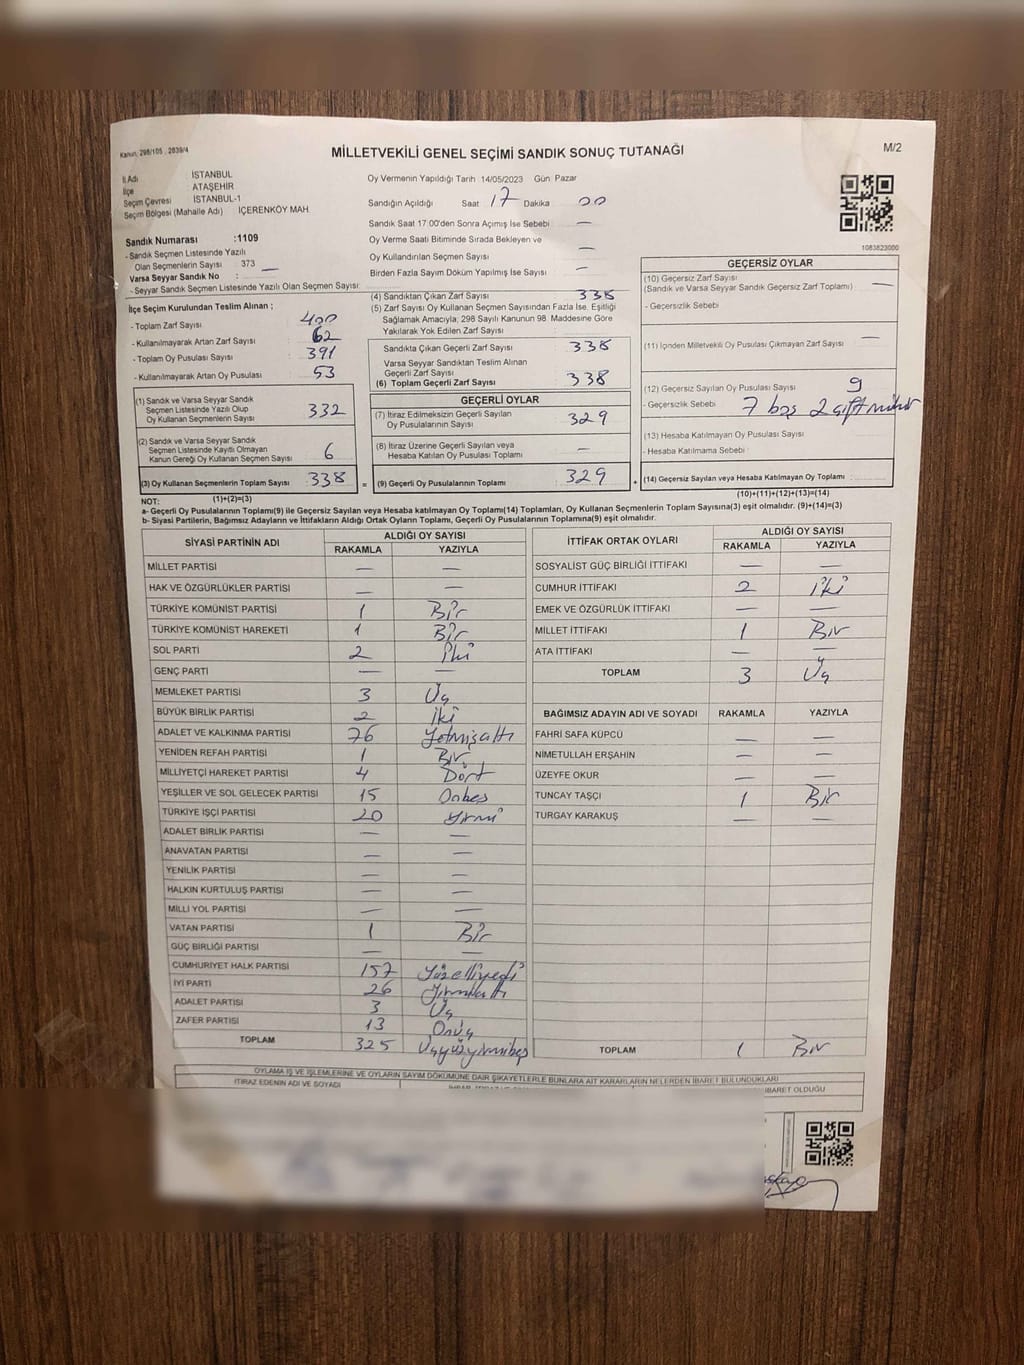 Kanun: 298/105 , 2839/4
MİLLETVEKİLİ GENEL SEÇİMİ SANDIK SONUÇ TUTANAĞI
M/2
İl Adı : İSTANBUL
İlçe : ATAŞEHİR
Seçim Çevresi : İSTANBUL-1
Seçim Bölgesi (Mahalle Adı) : İÇERENKÖY MAH.
Oy Vermenin Yapıldığı Tarih 14/05/2023 Gün Pazar
Sandığın Açıldığı Saat 17 Dakika 00
Sandık Saat 17:00'den Sonra Açımış İse Sebebi : —
Oy Verme Saati Bitiminde Sırada Bekleyen ve
Oy Kullandırılan Seçmen Sayısı : —
Birden Fazla Sayım Döküm Yapılmış İse Sayısı : —
1083823000
Sandık Numarası :1109
- Sandık Seçmen Listesinde Yazılı
Olan Seçmenlerin Sayısı : 373
Varsa Seyyar Sandık No : —
- Seyyar Sandık Seçmen Listesinde Yazılı Olan Seçmen Sayısı:
İlçe Seçim Kurulundan Teslim Alınan ;
- Toplam Zarf Sayısı : 400
- Kullanılmayarak Artan Zarf Sayısı : 62
- Toplam Oy Pusulası Sayısı : 391
- Kullanılmayarak Artan Oy Pusulası : 53
(1) Sandık ve Varsa Seyyar Sandık
Seçmen Listesinde Yazılı Olup
Oy Kullanan Seçmenlerin Sayısı : 332
(2) Sandık ve Varsa Seyyar Sandık
Seçmen Listesinde Kayıtlı Olmayan
Kanun Gereği Oy Kullanan Seçmen Sayısı : 6
(3) Oy Kullanan Seçmenlerin Toplam Sayısı : 338
(1)+(2)=(3)
(4) Sandıktan Çıkan Zarf Sayısı : 338
(5) Zarf Sayısı Oy Kullanan Seçmen Sayısından Fazla İse, Eşitliği
Sağlamak Amacıyla; 298 Sayılı Kanunun 98. Maddesine Göre
Yakılarak Yok Edilen Zarf Sayısı :
Sandıkta Çıkan Geçerli Zarf Sayısı : 338
Varsa Seyyar Sandıktan Teslim Alınan
Geçerli Zarf Sayısı :
(6) Toplam Geçerli Zarf Sayısı : 338
GEÇERLİ OYLAR
(7) İtiraz Edilmeksizin Geçerli Sayılan
Oy Pusulalarının Sayısı : 329
(8) İtiraz Üzerine Geçerli Sayılan veya
Hesaba Katılan Oy Pusulası Toplamı : —
= (9) Geçerli Oy Pusulalarının Toplamı : 329
GEÇERSİZ OYLAR
(10) Geçersiz Zarf Sayısı : —
(Sandık ve Varsa Seyyar Sandık Geçersiz Zarf Toplamı)
- Geçersizlik Sebebi :
(11) İçinden Milletvekili Oy Pusulası Çıkmayan Zarf Sayısı : —
(12) Geçersiz Sayılan Oy Pusulası Sayısı : 9
- Geçersizlik Sebebi : 7 boş 2 çift mühür
(13) Hesaba Katılmayan Oy Pusulası Sayısı :
- Hesaba Katılmama Sebebi :
+ (14) Geçersiz Sayılan veya Hesaba Katılmayan Oy Toplamı :
(10)+(11)+(12)+(13)=(14)
NOT:
a- Geçerli Oy Pusulalarının Toplamı(9) ile Geçersiz Sayılan veya Hesaba Katılmayan Oy Toplamı(14) Toplamları, Oy Kullanan Seçmenlerin Toplam Sayısına(3) eşit olmalıdır. (9)+(14)=(3)
b- Siyasi Partilerin, Bağımsız Adayların ve İttifakların Aldığı Ortak Oyların Toplamı, Geçerli Oy Pusulalarının Toplamına(9) eşit olmalıdır.
SİYASİ PARTİNİN ADI ALDIĞI OY SAYISI
RAKAMLA YAZIYLA
MİLLET PARTİSİ — —
HAK VE ÖZGÜRLÜKLER PARTİSİ — —
TÜRKİYE KOMÜNİST PARTİSİ 1 Bir
TÜRKİYE KOMÜNİST HAREKETİ 1 Bir
SOL PARTİ 2 İki
GENÇ PARTİ — —
MEMLEKET PARTİSİ 3 Üç
BÜYÜK BİRLİK PARTİSİ 2 İki
ADALET VE KALKINMA PARTİSİ 76 Yetmişaltı
YENİDEN REFAH PARTİSİ 1 Bir
MİLLİYETÇİ HAREKET PARTİSİ 4 Dört
YEŞİLLER VE SOL GELECEK PARTİSİ 15 Onbeş
TÜRKİYE İŞÇİ PARTİSİ 20 Yirmi
ADALET BİRLİK PARTİSİ — —
ANAVATAN PARTİSİ — —
YENİLİK PARTİSİ — —
HALKIN KURTULUŞ PARTİSİ — —
MİLLİ YOL PARTİSİ — —
VATAN PARTİSİ 1 Bir
GÜÇ BİRLİĞİ PARTİSİ — —
CUMHURİYET HALK PARTİSİ 157 Yüzelliyedi
İYİ PARTİ 26 Yirmialtı
ADALET PARTİSİ 3 Üç
ZAFER PARTİSİ 13 Onüç
TOPLAM 325 Üçyüzyirmibeş
İTTİFAK ORTAK OYLARI ALDIĞI OY SAYISI
RAKAMLA YAZIYLA
SOSYALİST GÜÇ BİRLİĞİ İTTİFAKI — —
CUMHUR İTTİFAKI 2 İki
EMEK VE ÖZGÜRLÜK İTTİFAKI — —
MİLLET İTTİFAKI 1 Bir
ATA İTTİFAKI — —
TOPLAM 3 Üç
BAĞIMSIZ ADAYIN ADI VE SOYADI RAKAMLA YAZIYLA
FAHRİ SAFA KÜPCÜ — —
NİMETULLAH ERŞAHİN — —
ÜZEYFE OKUR — —
TUNCAY TAŞÇI 1 Bir
TURGAY KARAKUŞ — —
TOPLAM 1 Bir
OYLAMA İŞ VE İŞLEMLERİNE VE OYLARIN SAYIM DÖKÜMÜNE DAİR ŞİKAYETLERLE BUNLARA AİT KARARLARIN NELERDEN İBARET BULUNDUKLARI
İTİRAZ EDENİN ADI VE SOYADI
İBARET OLDUĞU